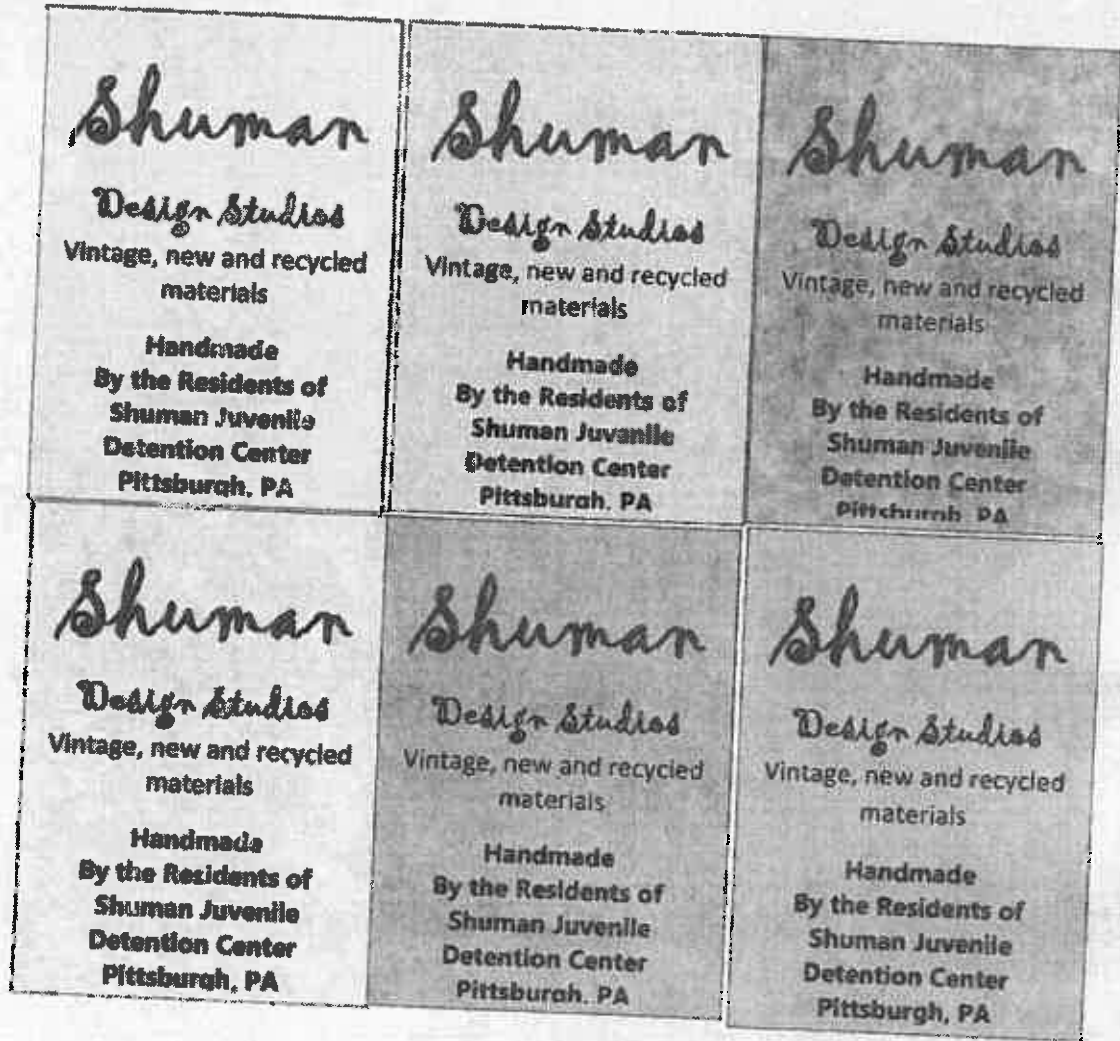 Shuman
Design Studios
Vintage, new and recycled
materials
Handmade
By the Residents of
Shuman Juvenile
Detention Center
Pittsburgh, PA
Shuman
Design Studios
Vintage, new and recycled
materials
Handmade
By the Residents of
Shuman Juvenile
Detention Center
Pittsburgh, PA
Shuman
Design Studios
Vintage, new and recycled
materials
Handmade
By the Residents of
Shuman Juvenile
Detention Center
Pittsburgh, PA
Shuman
Design Studios
Vintage, new and recycled
materials
Handmade
By the Residents of
Shuman Juvenile
Detention Center
Pittsburgh, PA
Shuman
Design Studios
Vintage, new and recycled
materials
Handmade
By the Residents of
Shuman Juvenile
Detention Center
Pittsburgh, PA
Shuman
Design Studios
Vintage, new and recycled
materials
Handmade
By the Residents of
Shuman Juvenile
Detention Center
Pittsburgh, PA